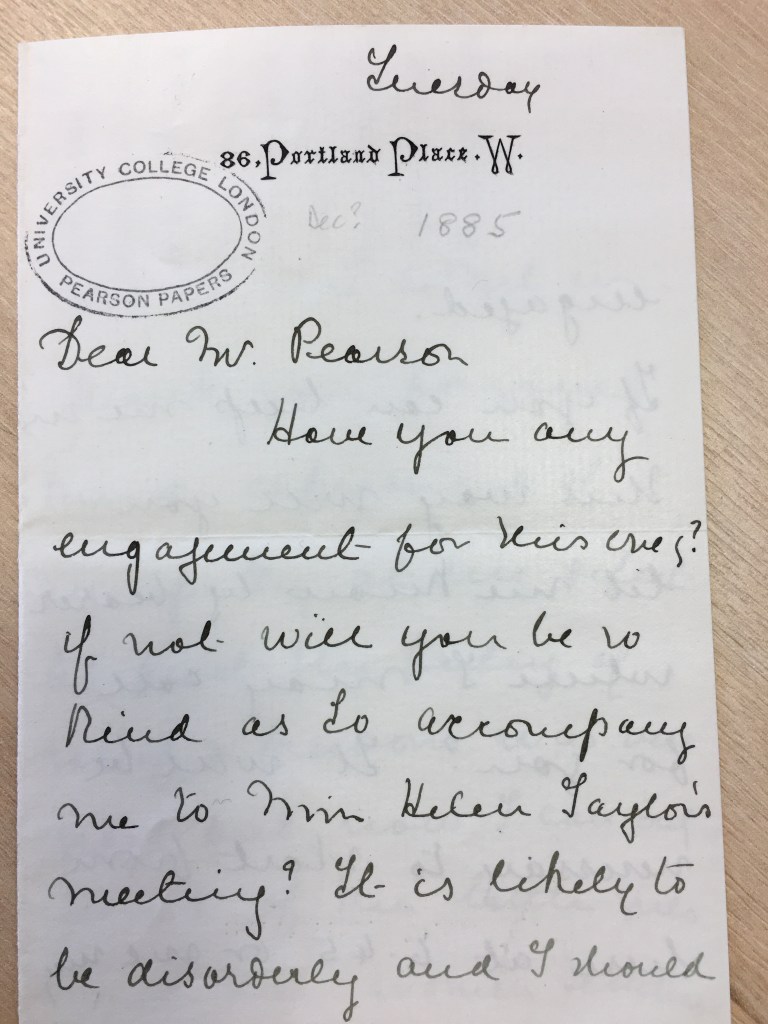 Tuesday
86, Portland Place. W.
UNIVERSITY COLLEGE LONDON
PEARSON PAPERS
Dec? 1885
Dear Mr. Pearson
Have you any
engagement for this eveg?
if not will you be so
kind as to accompany
me to Miss Helen Taylor's
meeting? It is likely to
be disorderly and I should